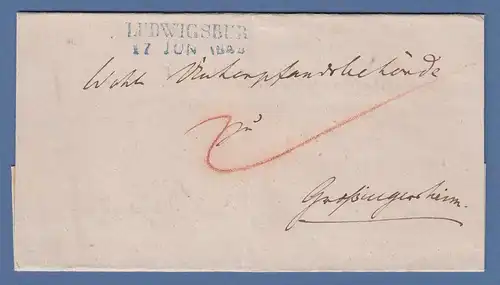 LUDWIGSBUR
17 JUN
Wohl. Unterpfandsbehörde
zu
Großingersheim.